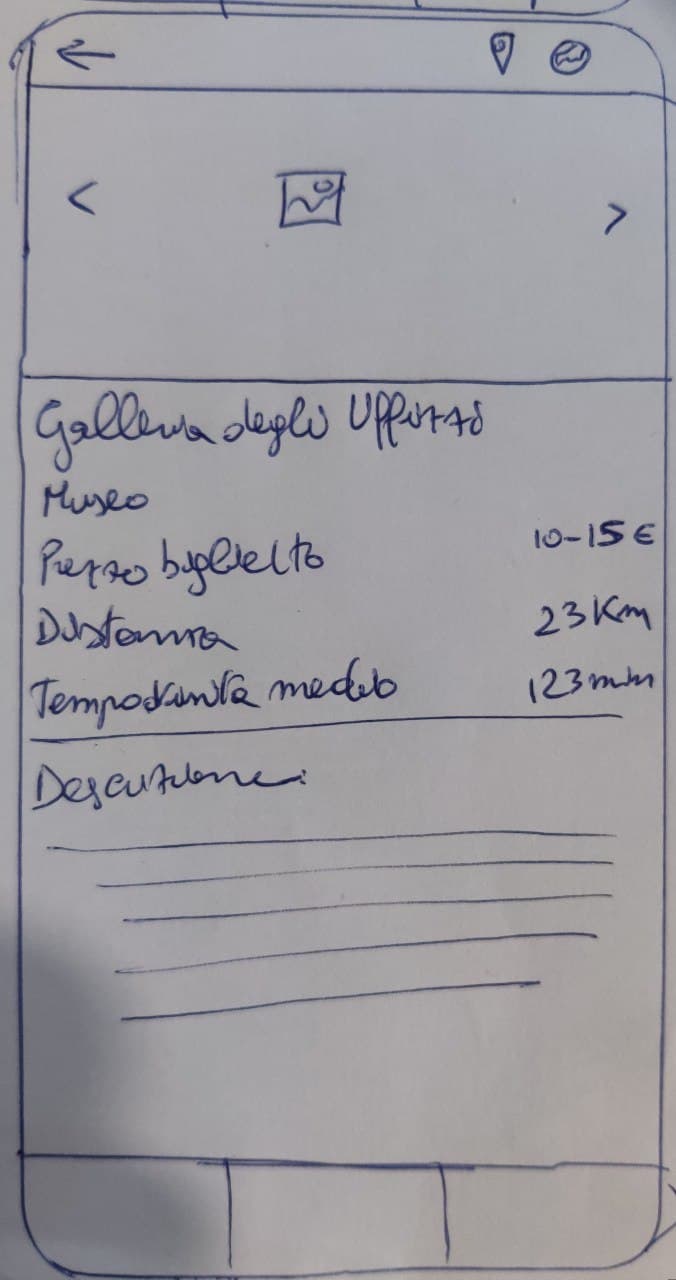 Galleria degli Uffizzi
Museo
Prezzo biglietto 10-15 €
Distanza 23 Km
Tempo visita medio 123 min
Descrizione: